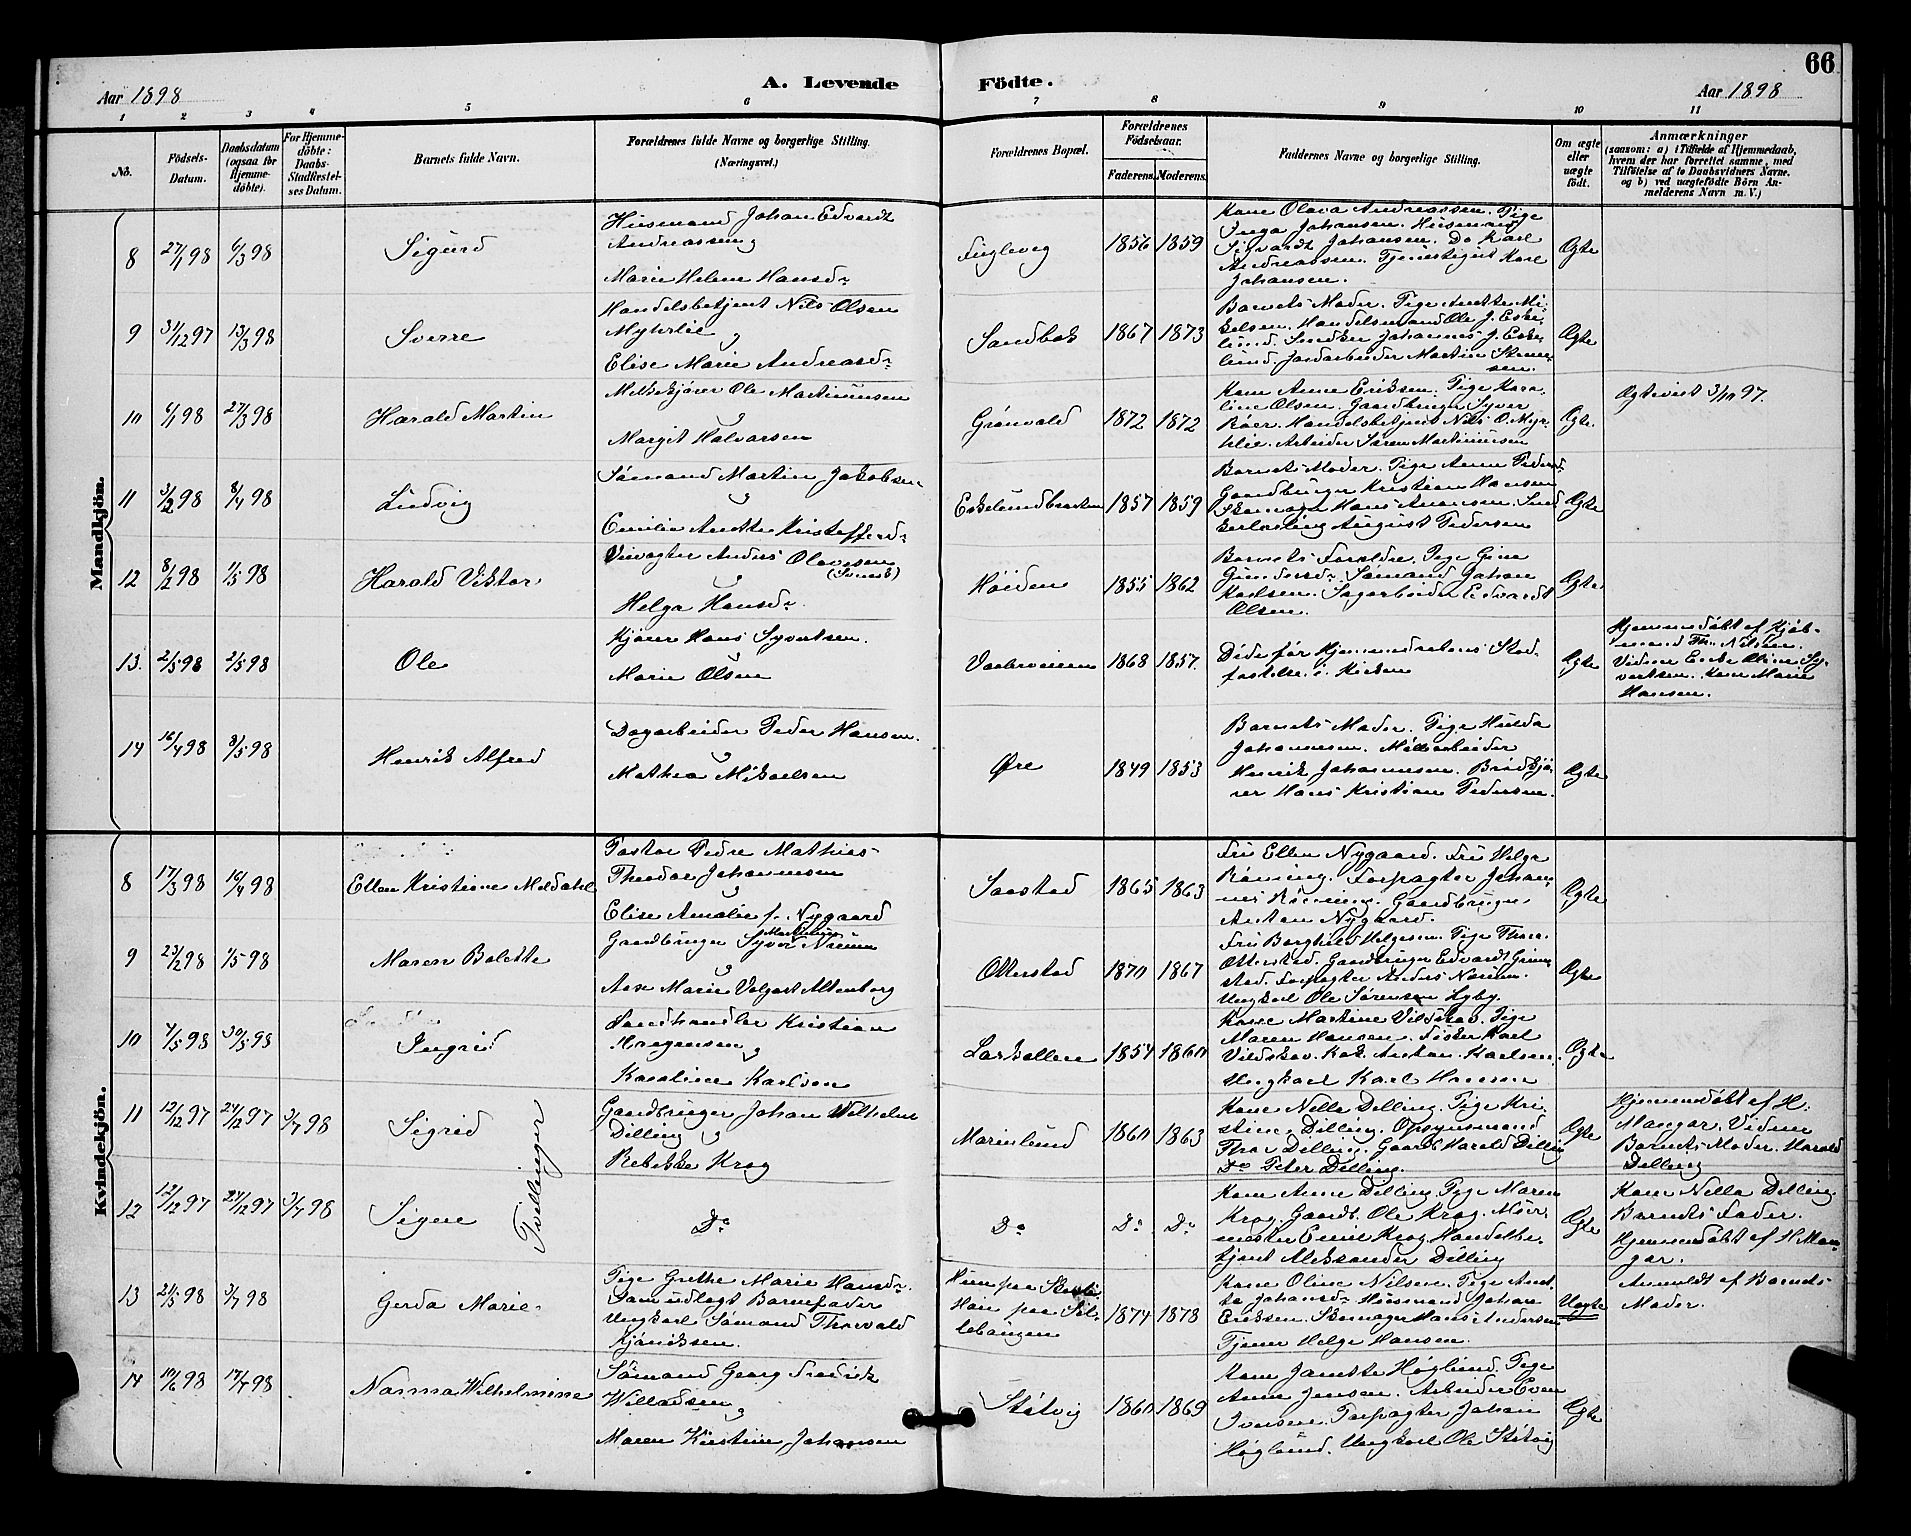 66
Aar 1898 A. Levende Födte. Aar 1898
1 2 3 4 5 6 7 8 9 10 11
No. Födsels-Datum. Daabsdatum (ogsaa for Hjemmedöbte). For Hjemmedöbte: Daabs-Stadfestelses Datum. Barnets fulde Navn. Forældrenes fulde Navne og borgerlige Stilling. (Næringsvei.) Forældrenes Bopæl. Forældrenes Födselsaar. Faderens. Moderens. Faddernes Navne og borgerlige Stilling. Om ægte eller uægte födt. Anmærkninger (saasom: a) i Tilfælde af Hjemmedaab, hvem der har forrettet samme, med Tilföielse af to Daabsvidners Navne, og b) ved uægtefödte Börn Anmelderens Navn m. V.)
Mandkjön.
8 27/1 98 6/3 98 Sigurd
Husmand Johan Edvardt
Andreassen
og
Marie Helene Hansdr
Fuglevig 1856 1859
Kone Olava Andreassen. Pige
Inga Johansen. Husmand
Sigvardt Johansen. Do Karl
Andreassen. Tjenestegut Karl
Johansen.
Ægte
9 31/12 97 13/3 98 Sverre
Handelsbetjent Nils Olsen
Myhrlie
og
Elise Marie Andreasdr
Sandbæk 1867 1873
Barnets Moder. Pige Anette Mi-
kelsen. Handelsmand Ole J. Eske-
lund. Snedker Johannes J. Eske-
lund. Jordarbeider Martin Stener-
sen.
Ægte
10 6/1 98 27/3 98 Harald Martin
Melkekjører Ole Martiniusen
og
Margit Halvorsen
Grønvold 1872 1872
Kone Anne Eriksen. Pige Karo-
line Olsen. Gaardbruger Syver
Röer. Handelsbetjent Nils O. Myr-
hlie. Arbeider Søren Martiniusen
Ægte.
Ægteviet 3/10 97.
11 3/2 98 8/4 98 Ludvig
Sømand Martin Jakobsen
og
Emilie Anette Kristoffersdr
Eskelundbraaten 1857 1859
Barnets Moder. Pige Anne Peders
Gaardbruger Kristian Hansen
Skomager Hans Hansen. Sned
kerlærling August Pedersen
Ægte
12 8/2 98 1/5 98 Harald Viktor
Veivogter Anders Olavesen
(Svensk)
og
Helga Hansdr.
Høiden 1855 1862
Barnets Foreldre. Pige Gina
Gundersdr. Sømand Johan
Karlsen. Sagarbeider Edvardt
Olsen.
Ægte
13. 2/5 98 2/5 98 Ole
Kjører Hans Syvertsen.
Marie Olsen
Vaalerveien 1868 1857.
Döde før Hjemmedaabens Stad-
festelse i Kirken
Ægte
Hjemmedøbt af Kjøb-
mand Th. Nilsen.
Vidner Enke Oline Sy-
vertsen. Kone Marie
Hansen.
14 16/4 98 8/5 98 Henrik Alfred
Dagarbeider Peder Hansen.
og
Mathea Mikaelsen
Øre 1849 1853
Barnets Moder. Pige Hulda
Johannesen. Møllearbeider
Henrik Johannesen. Brødkjø-
rer Hans Kristian Pedersen.
Ægte
Kvindekjön.
8 17/3 98 10/4 98 Ellen Kristiane Meldahl
Pastor Peder Mathias
Theodor Johannesen
og
Elise Amalie f. Nygaard
Saastad 1865 1863
Fru Ellen Nygaard. Fru Helga
Rönning. Forpagter Johan-
nes Rönning. Gaardbruger
Anton Nygaard.
Ægte
9 23/2 98 1/5 98 Maren Bolette
Gaardbruger Syver Martinius Nreum
og
Aase Marie Volgart Altenborg
Otterstad 1870 1867
Fru Borghild Helgesen. Pige Thora
Otterstad. Gaardbruger Edvardt Grim-
stad. Forpagter Anders Norum.
Ungkarl Ole Sørensen Lyby.
Ægte
10 4/5 98 30/5 98 Ingrid
Landhandler Kristian
Mogensen
og
Karoline Karlsen
Larkollen 1854 1860
Kone Martine Vildskov. Pige
Maren Hansen. Fisker Karl
Vildskov. Kok Anton Karlsen.
Ungkarl Karl Hansen
Ægte
11 12/12 97 24/12 97 3/7 98 Sigrid
Tvillinger
Gaardbruger Johan Wilhelm
Dilling
og
Rebekke Krog
Marielund 1860 1863
Kone Nella Dilling. Pige Kri-
stine Dilling. Opsynsmand
Thor Dilling. Gaardb. Harald Dilling
Do Peter Dilling.
Ægte
Hjemmedøbt af H.
Mangar. Vidner
Barnets Moder. Harald
Dilling
12 12/12 97 24/12 97 3/7 98 Signe
Do
Do Do Do
Kone Anne Dilling. Pige Maren
Krog. Gaardb. Ole Krog. Mür-
mester Emil Krog. Handelsbe-
tjent Aleksander Dilling
Ægte
Kone Nella Dilling
Barnets Fader.
Hjemmedøbt af H. Man-
gar.
13 21/5 98 3/7 98 Gerda Marie
Pige Grethe Marie Hansdr.
Som udlagt Barnefader
Ungkarl Sømand Thorvald
Kjøniksen.
Hun paa
Han paa Sil-
lebaugen
1874 1878
Kone Oline Nilsen. Pige Anet-
te Johansdr. Husmand Johan
Eriksen. Skomager Hans Andersen
Tjener Helge Hansen.
Uægte
Anmeldt af Barnets
Moder.
14 10/6 98 17/7 98 Norma Wilhelmine
Sømand Georg Fredrik
Willadsen
og
Maren Kirstine Johansen
Støtvig 1860 1869
Kone Janette Høglund. Pige
Anna Jensen. Arbeider Even
Iversen. Forpagter Johan
Høglund. Ungkarl Ole Støtvig
Ægte